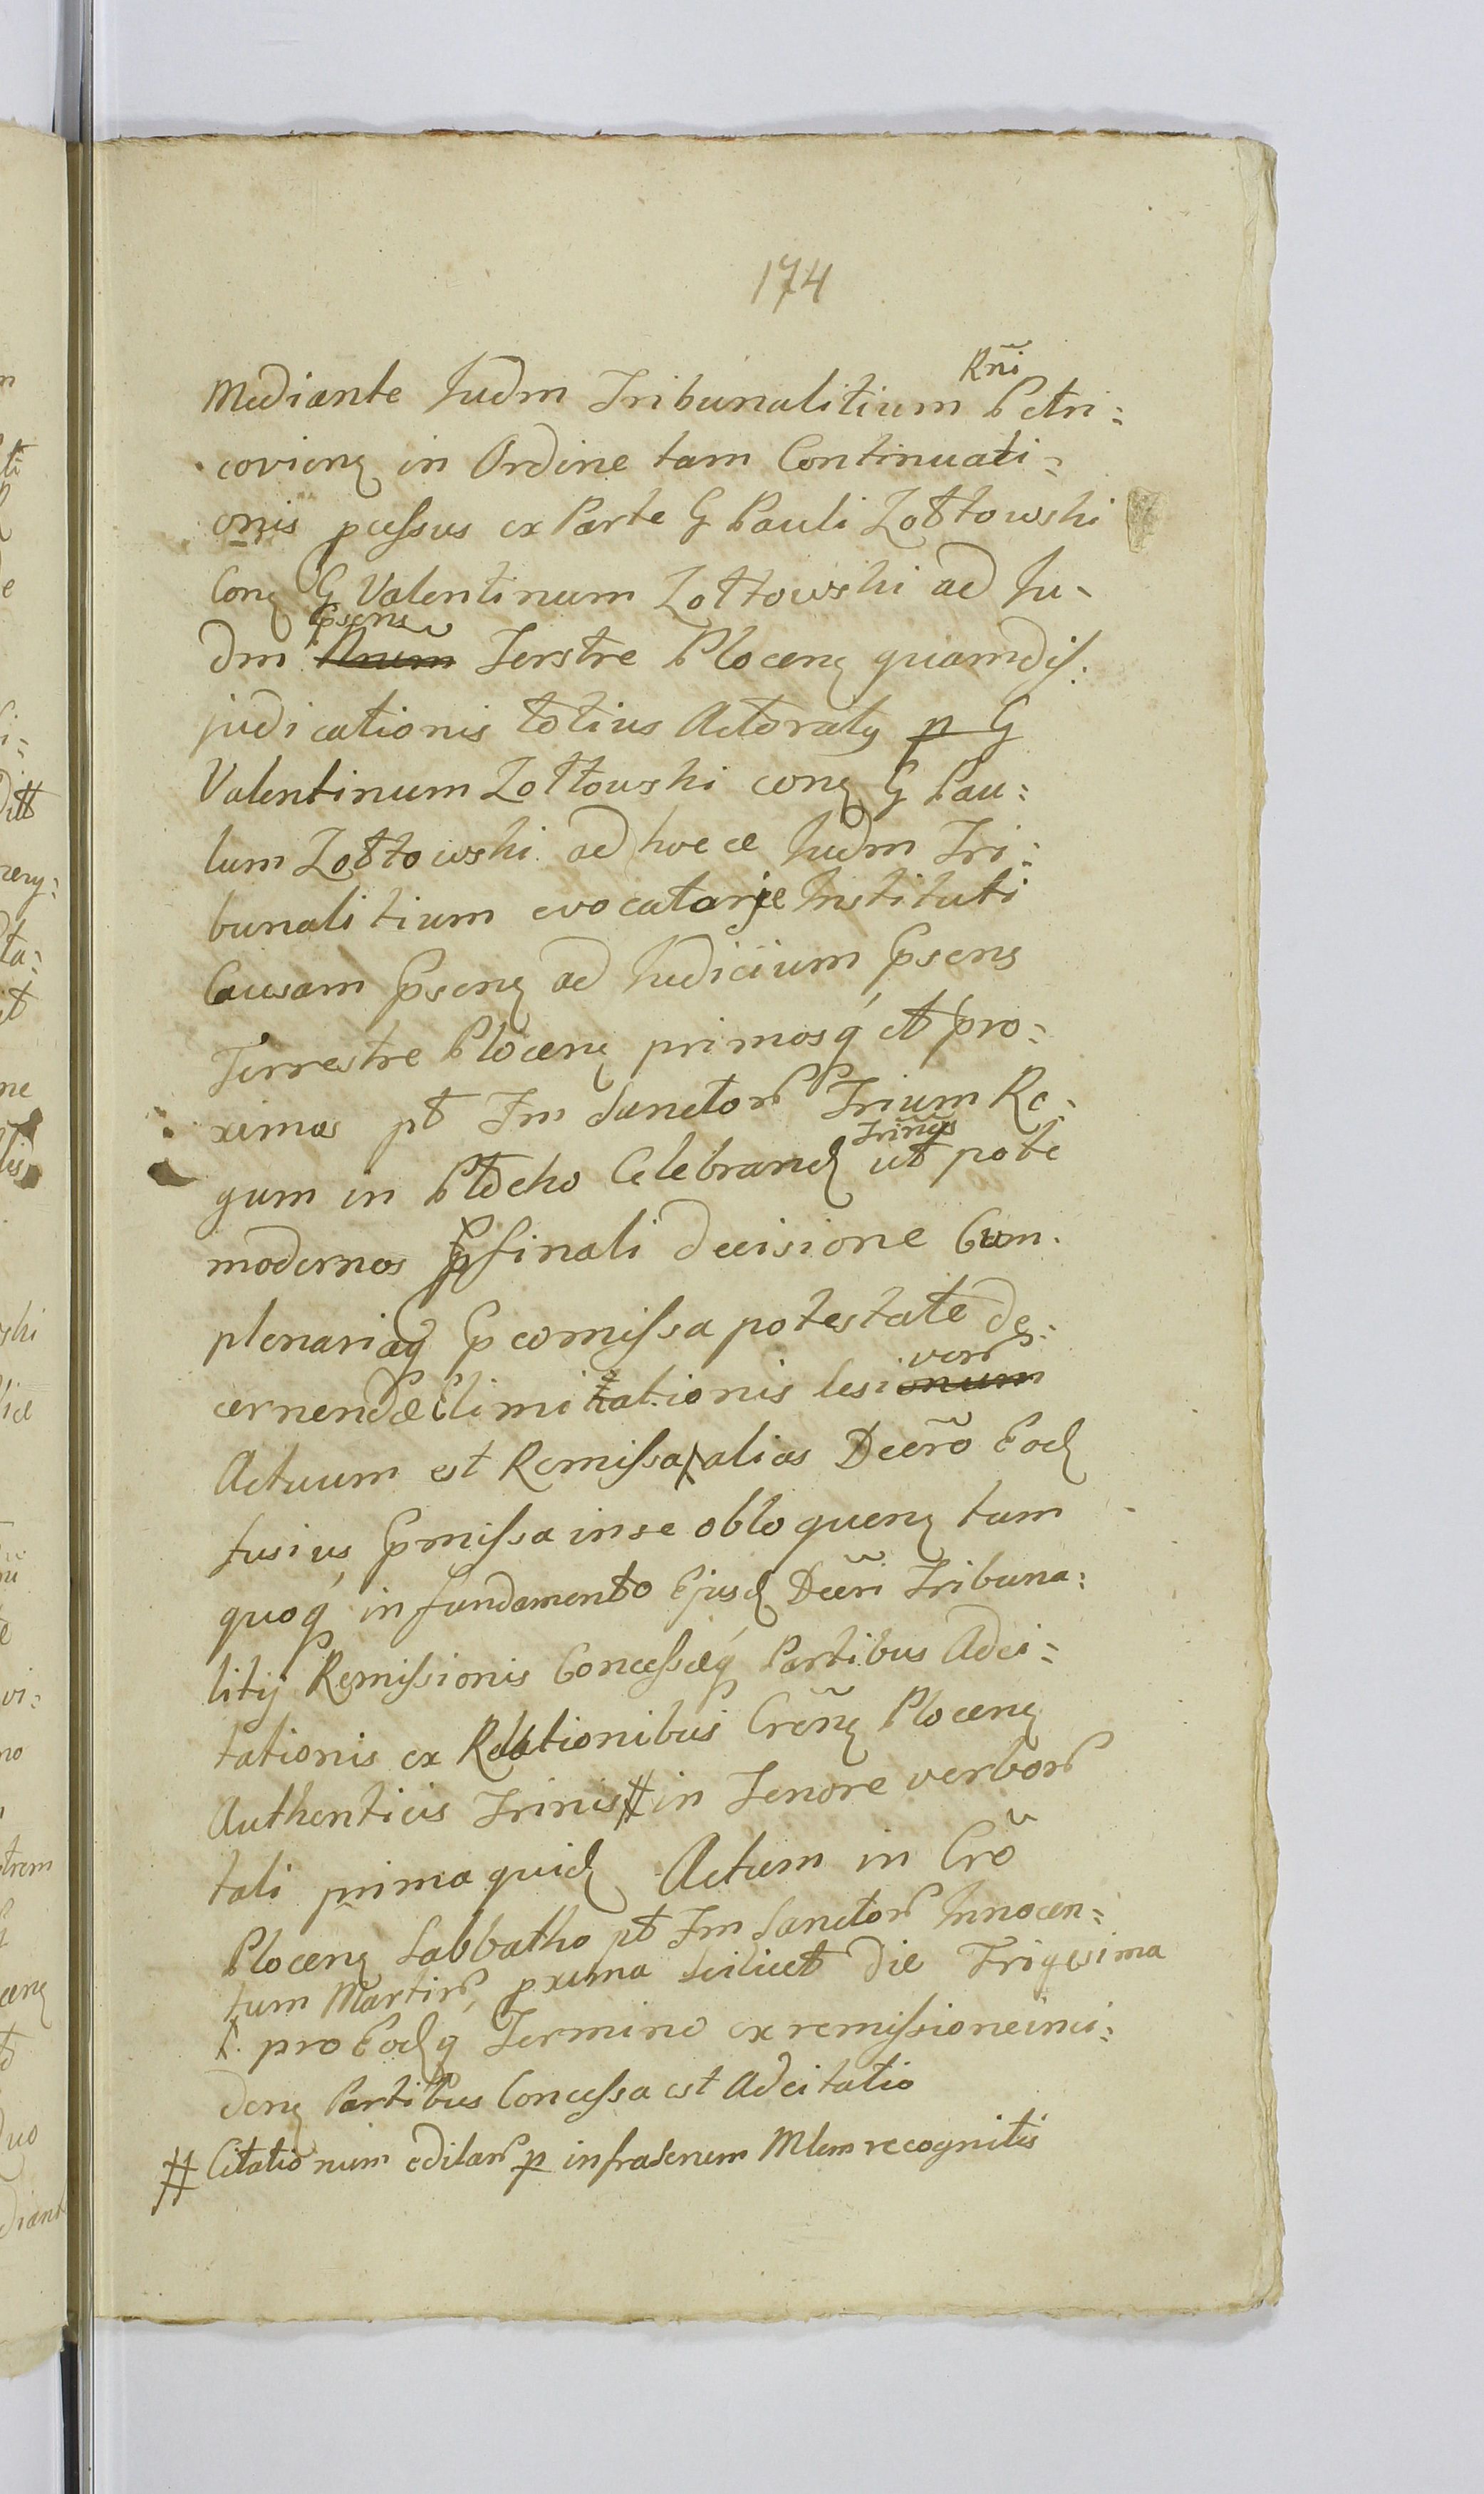 174
Rñi
Mediante Iudm Tribunalitium Petri=
covienę in Ordine tam Continuati=
onis pcessus ex Parte G Pauli Zołtowski
Conę G Valentinum Zołtowski ad Iu-
psens
dm Terstre Plocenę quam dis.
judicationis totius Actoratq p G
Valentinum Zołtowski conę G Pau=
lum Zołtowski ad hocce Iudm Tri=
bunalitium evocatorie Instituti
Causam psenę ad Iudicium psens
Terrestre Plocenę primosq et pro=
ximos pt Fm Sanctor Trium Re=
Trinos
gum in Płocko Celebrand utpote
modernos p finali decisione Cum
plenariaq p comissa potestate de=
vor
cernendæ limitationis lesionum
Actuum est Remissa alias Decrõ Eod
fusius pmissa in se obloquenę tum
quoq in fundamento Ejusd Decri Tribuna=
litij Remissionis Concessæq Partibus Adci=
tationis ex Relationibus Crenę Plocenę
Authenticis Trinis # in Tenore verbor
tali prima quid Actum in Crõ
Plocenę Sabbatho pt Fm Sanctor Innocen=
tum Martir, pxima scilicet die Trigesima
pro Eodq Termino ex remissione inci=
denę Partibus Concessa est Adcitatio
# Citationum editar p infrascrum Mlem recognitis